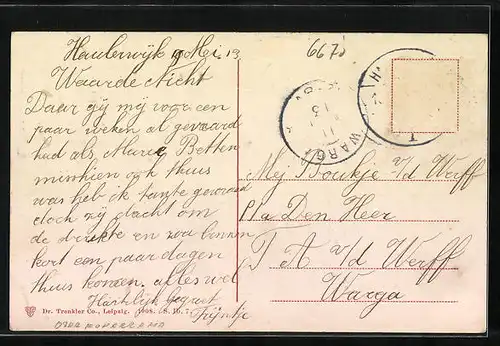 Haulerwijk 9 Mei 13
Waarde Nicht
Daar gij mij voor een
paar weken al gevraagd
had als Marie Betten
misschien ook thuis
was heb ik tante gevraagd
doch zij dacht om
de drukte en zoo binnen
kort een paar dagen
thuis komen. alles wel
Hartelijk gegroet
Trijntje
667
WARGA
Mej Boukje v/d Werff
p/a Den Heer
T A v/d Werff
Warga
Dr. Trenkler Co., Leipzig. 1908.